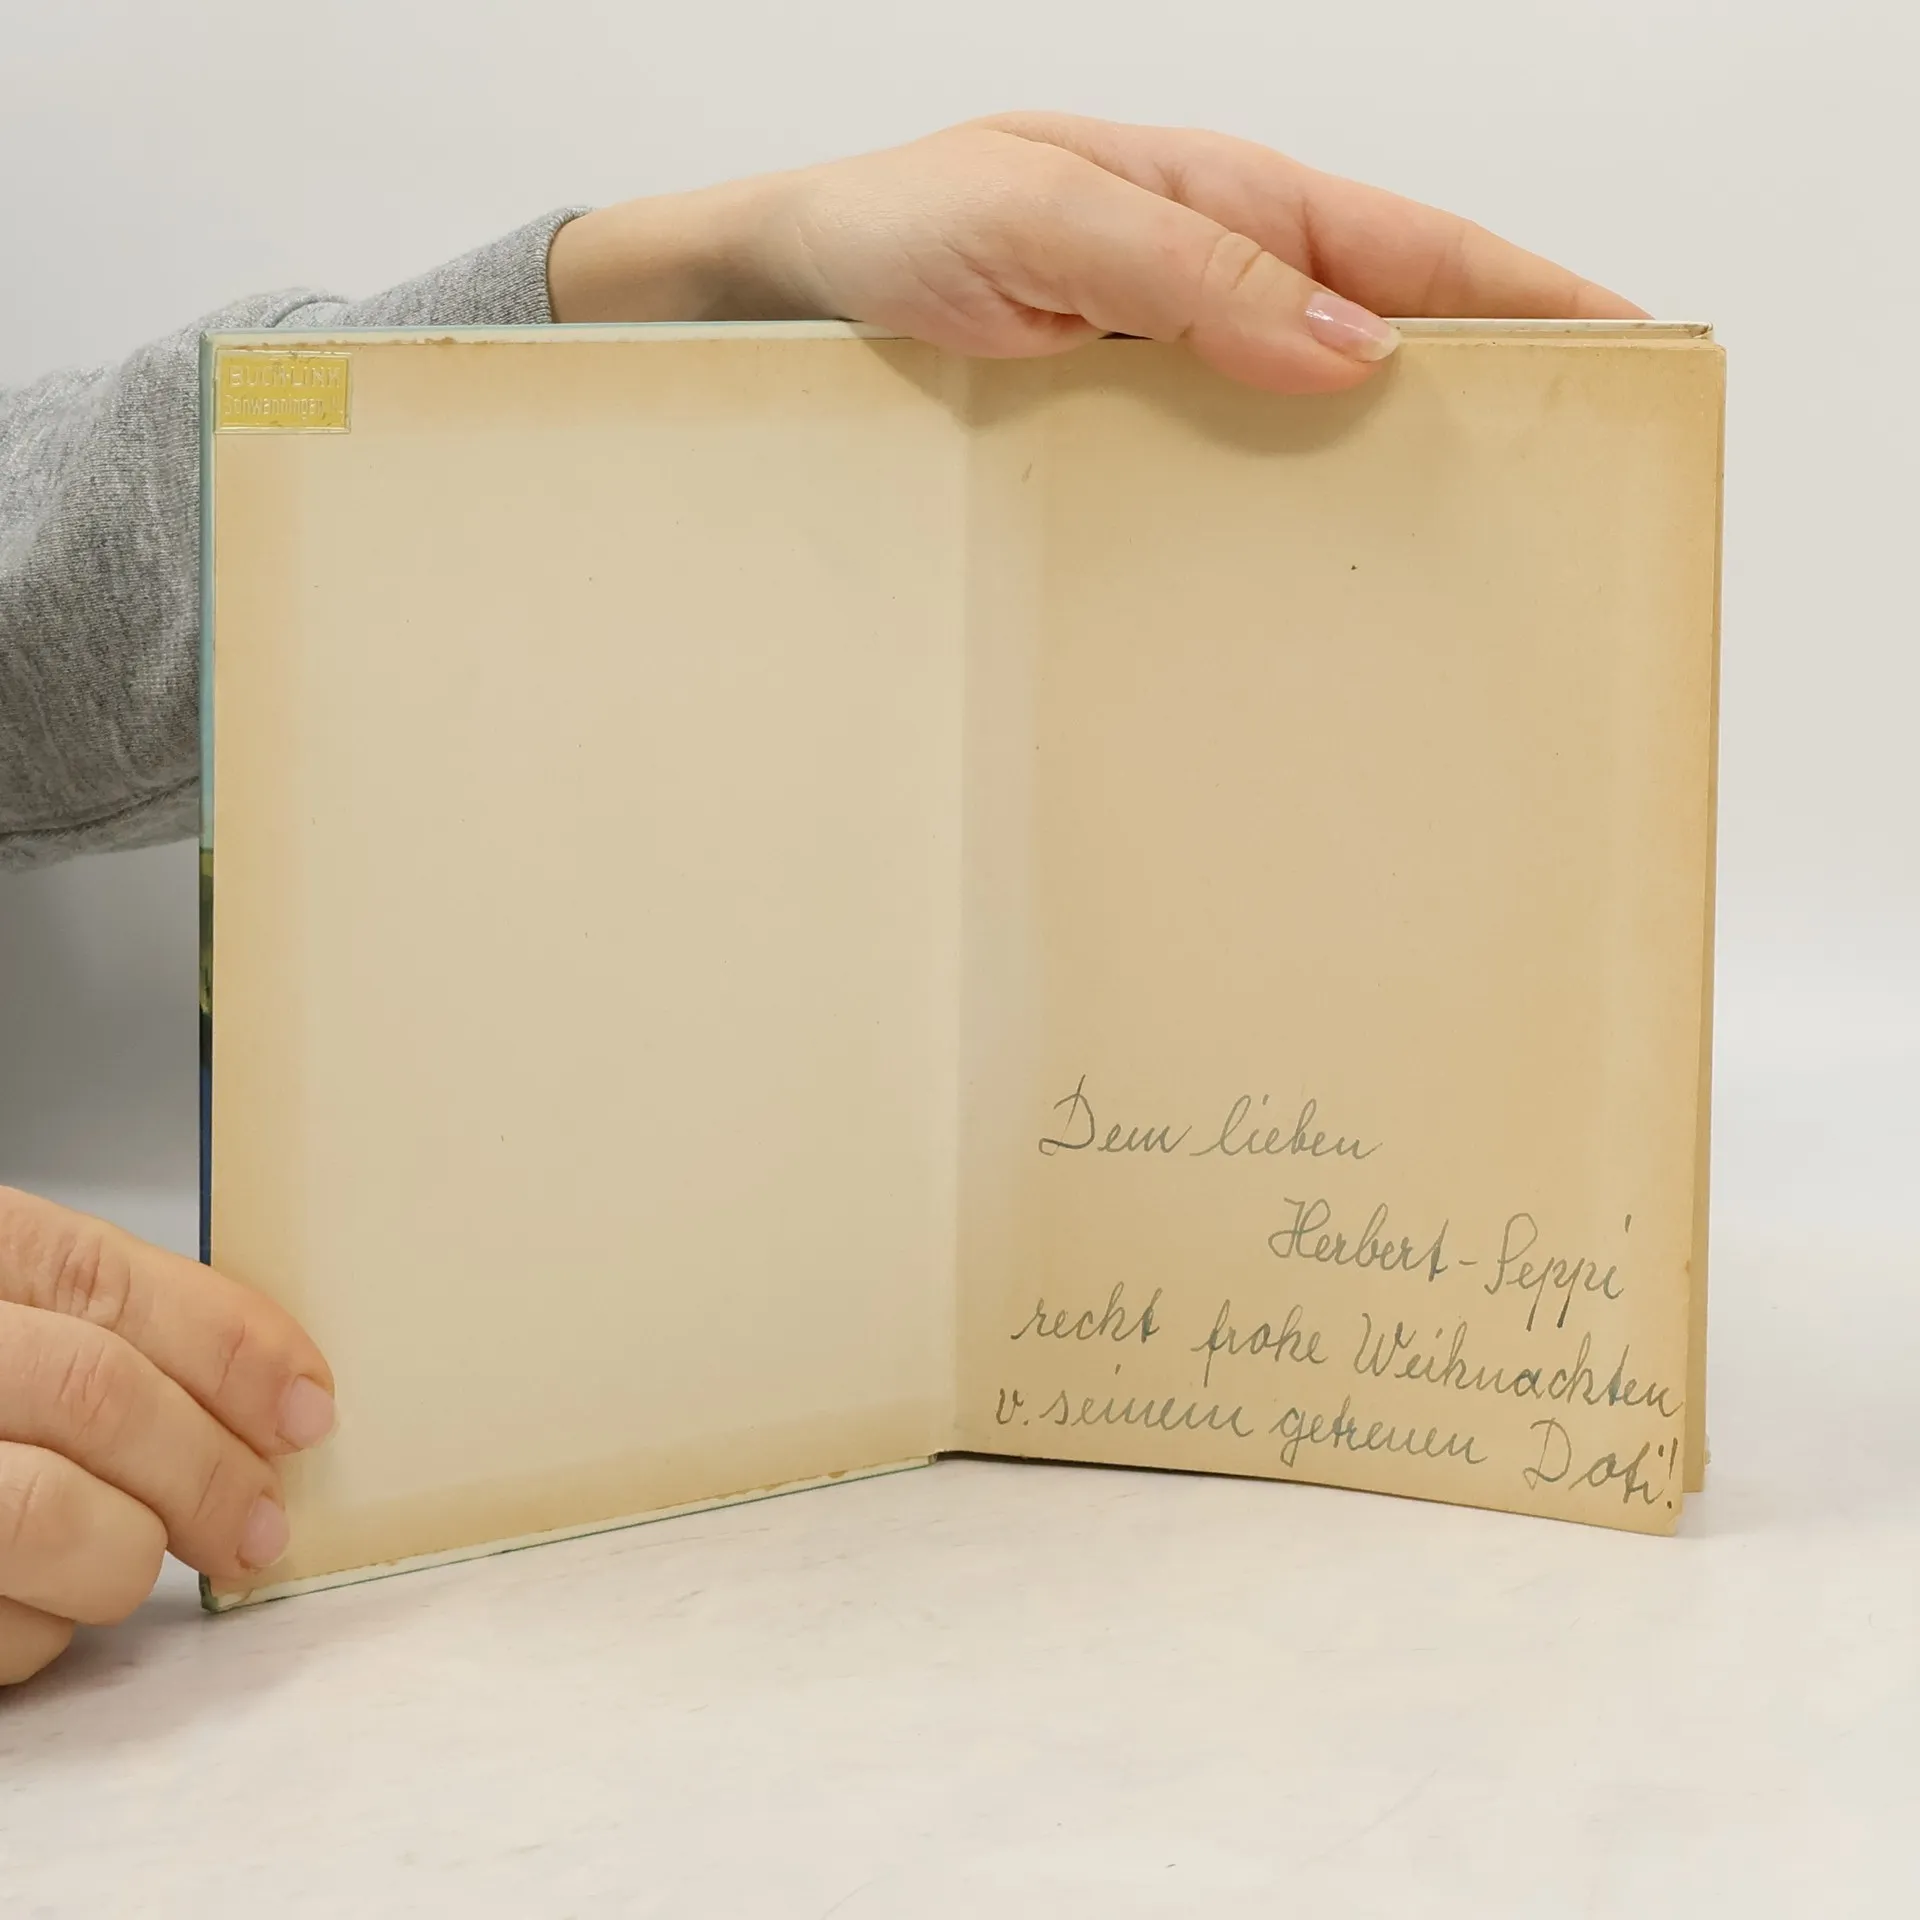 BUCH-LINK
Schwenningen
Dem lieben
Herbert-Seppi
recht frohe Weihnachten
v. seinem getreuen Doti!